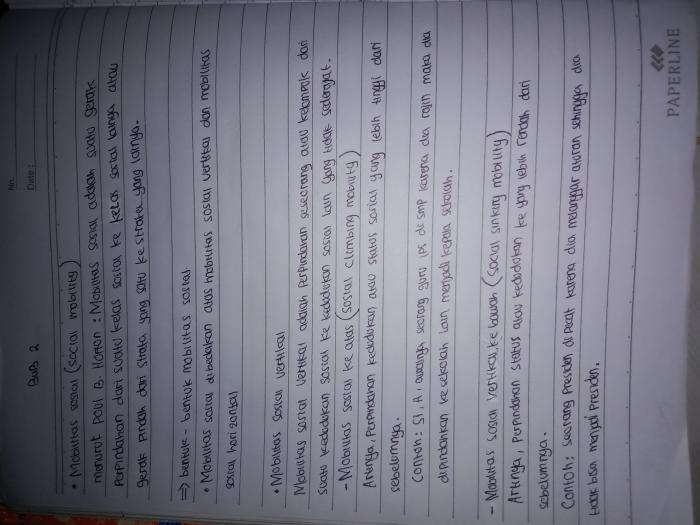 No.
Date:
BAB 2
• Mobilitas sosial (social mobility)
menurut Paul B. Horton : Mobilitas sosial adalah suatu gerak
Perpindahan dari suatu kelas sosial ke kelas sosial lainya atau
gerak pindah dari strata yang satu ke strata yang lainya.
⇒ bentuk - bentuk mobilitas sosial
• Mobilitas sosial dibedakan atas mobilitas sosial vertikal dan mobilitas
sosial horizontal
• Mobilitas sosial vertikal
Mobilitas sosial vertikal adalah perpindahan seseorang atau kelompok dari
suatu kedudukan sosial ke kedudukan sosial lain yang tidak sederajat.
- Mobilitas sosial ke atas (sosial climbing mobility)
Artinya, Perpindahan kedudukan atau status sosial yang lebih tinggi dari
sebelumnya.
Contoh : Si, A, awalnya seorang guru ips di smp karena dia rajin maka dia
dipindahkan ke sekolah lain menjadi kepala sekolah.
- Mobilitas sosial vertikal, ke bawah (social sinking mobility)
Artinya, perpindahan status atau kedudukan ke yang lebih rendah dari
sebelumnya.
Contoh : seorang Presiden di pecat karena dia melanggar aturan sehingga dia
tidak bisa menjadi Presiden.
PAPERLINE